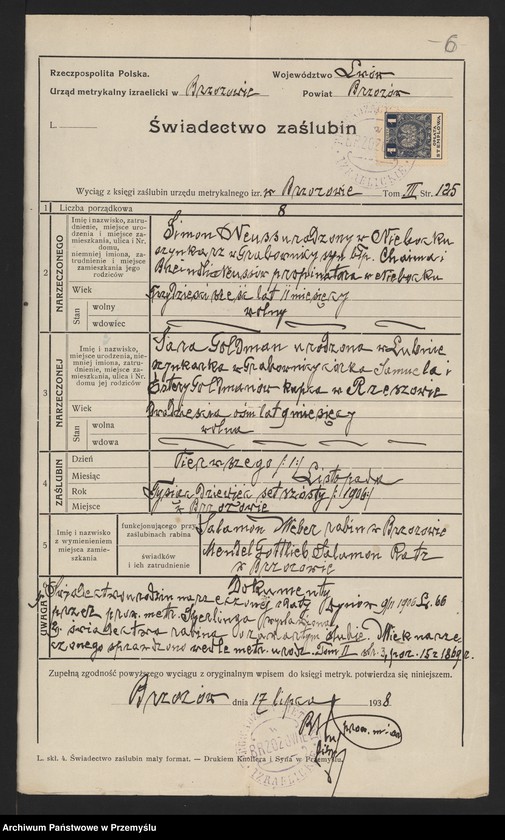 6
Rzeczpospita Polska.
Województwo Lwów
Urząd metrykalny izraelicki w Brzozowie
Powiat Brzozów
L.
Świadectwo zaślubin
OPŁATA STEMPLOWA
1 1
Wyciąg z księgi zaślubin urzędu metrykalnego izr. w Brzozowie Tom III Str. 125
1 Liczba porządkowa 8
2 NARZECZONEGO
Imię i nazwisko, zatrudnienie, miejsce urodzenia i miejsce zamieszkania, ulica i Nr. domu, niemniej imiona, zatrudnienie i miejsce zamieszkania jego rodziców
Simon Neuss urodzony w Niebocku
szynkarz w Grabownicy syn śp. Chaima i
Breindli Neussów propinatora w Niebocku
Wiek
Trzydzieści sześć lat 11 miesięcy
Stan
wolny
wolny
wdowiec
3 NARZECZONEJ
Imię i nazwisko, miejsce urodzenia, niemniej imiona, zatrudnienie, miejsce zamieszkania, ulica i Nr. domu jej rodziców
Sara Goldman urodzona w
szynkarka w Grabownicy córka Samuela i
Estery Goldmanów kupca w Rzeszowie
Wiek
ośm lat 9 miesięcy
Stan
wolna
wolna
wdowa
4 ZAŚLUBIN
Dzień
Pierwszego /:1:/
Miesiąc
Listopada
Rok
Tysiąc Dziewięć set szósty /:1906:/
Miejsce
w Brzozowie
5
Imię i nazwisko z wymienieniem miejsca zamieszkania
funkcjonującego przy zaślubinach rabina
Salamon Weber rabin w Brzozowie
świadków i ich zatrudnienie
Mendel Gottlieb, Salamon Ratz
w Brzozowie
UWAGA
Dokumenty
Świadectwo urodzin narzeczonej daty Dynów 9/11 1906 L. 66
przez prow. metr.
świadectwo rabina o zawartym ślubie. Wiek narze-
czonego sprawdzono wedle metr. urodz. Tom II str. 3, poz. 15 z 1869 r.
Zupełną zgodność powyższego wyciągu z oryginalnym wpisem do księgi metryk. potwierdza się niniejszem.
Brzozów dnia 17 lipca 1938
prow. m. izr.
L. skł. 4. Świadectwo zaślubin mały format. — Drukiem Knollera i Syna w Przemyślu.
Archiwum Państwowe w Przemyślu